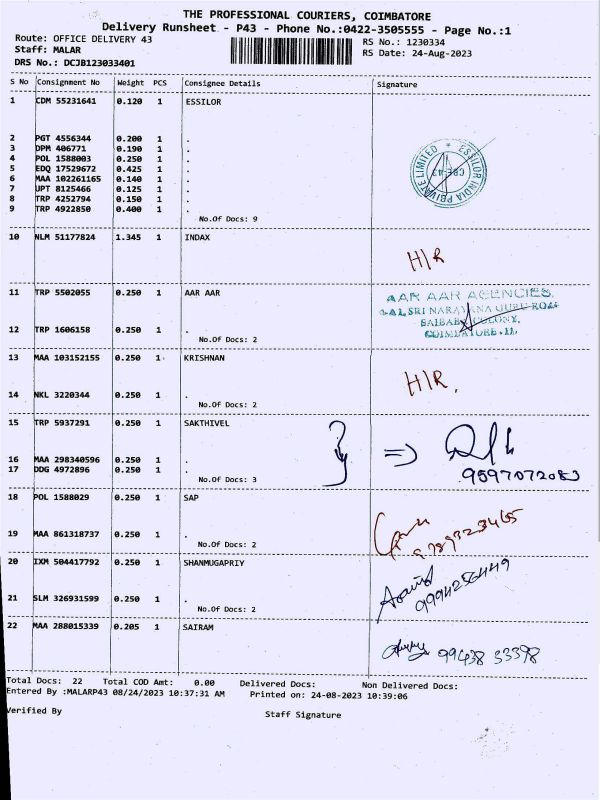 THE PROFESSIONAL COURIERS, COIMBATORE
Delivery Runsheet - P43 - Phone No.:0422-3505555 - Page No.:1
Route: OFFICE DELIVERY 43
RS No.: 1230334
Staff: MALAR
RS Date: 24-Aug-2023
DRS No.: DCJB123033401
S No Consignment No Weight PCS Consignee Details Signature
1 CDM 55231641 0.120 1 ESSILOR
2 PGT 4556344 0.200 1 .
3 DPM 406771 0.190 1 .
4 POL 1588003 0.250 1 .
5 EDQ 17529672 0.425 1 .
6 MAA 102261165 0.140 1 .
7 UPT 8125466 0.125 1 .
8 TRP 4252794 0.150 1 .
9 TRP 4922850 0.400 1 .
No.Of Docs: 9
ESSILOR INDIA PRIVATE LIMITED *
CBE-43
10 NLM 51177824 1.345 1 INDAX
H/R
11 TRP 5502055 0.250 1 AAR AAR
AAR AAR AGENCIES,
SRI NARAYANA GURU ROAD
SAIBABA COLONY,
COIMBATORE-11.
12 TRP 1606158 0.250 1 .
No.Of Docs: 2
13 MAA 103152155 0.250 1 KRISHNAN
H/R.
14 NKL 3220344 0.250 1 .
No.Of Docs: 2
15 TRP 5937291 0.250 1 SAKTHIVEL
16 MAA 298340596 0.250 1 .
17 DDG 4972896 0.250 1 .
No.Of Docs: 3
9597072083
18 POL 1588029 0.250 1 SAP
19 MAA 861318737 0.250 1 .
No.Of Docs: 2
9789323465
20 IXM 504417792 0.250 1 SHANMUGAPRIY
21 SLM 326931599 0.250 1 .
No.Of Docs: 2
9994256449
22 MAA 288015339 0.205 1 SAIRAM
99438 33398
Total Docs: 22 Total COD Amt: 0.00 Delivered Docs: Non Delivered Docs:
Entered By :MALARP43 08/24/2023 10:37:31 AM Printed on: 24-08-2023 10:39:06
Verified By
Staff Signature